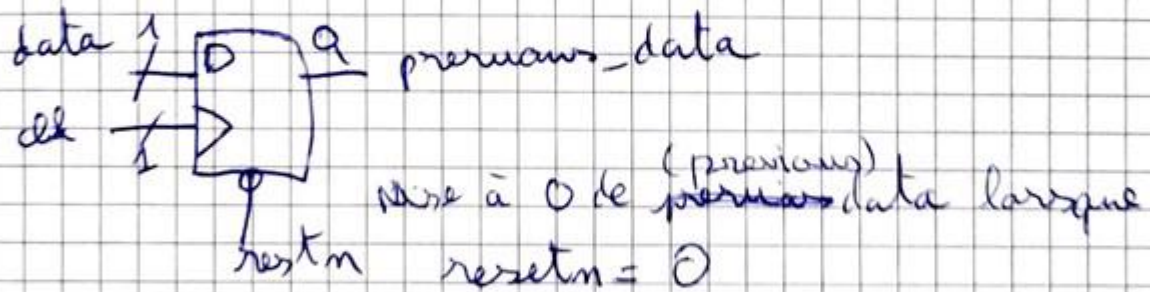 data 1 D Q previous_data
clk 1
(previous)
Mise à 0 de data lorsque
restn resetn = 0